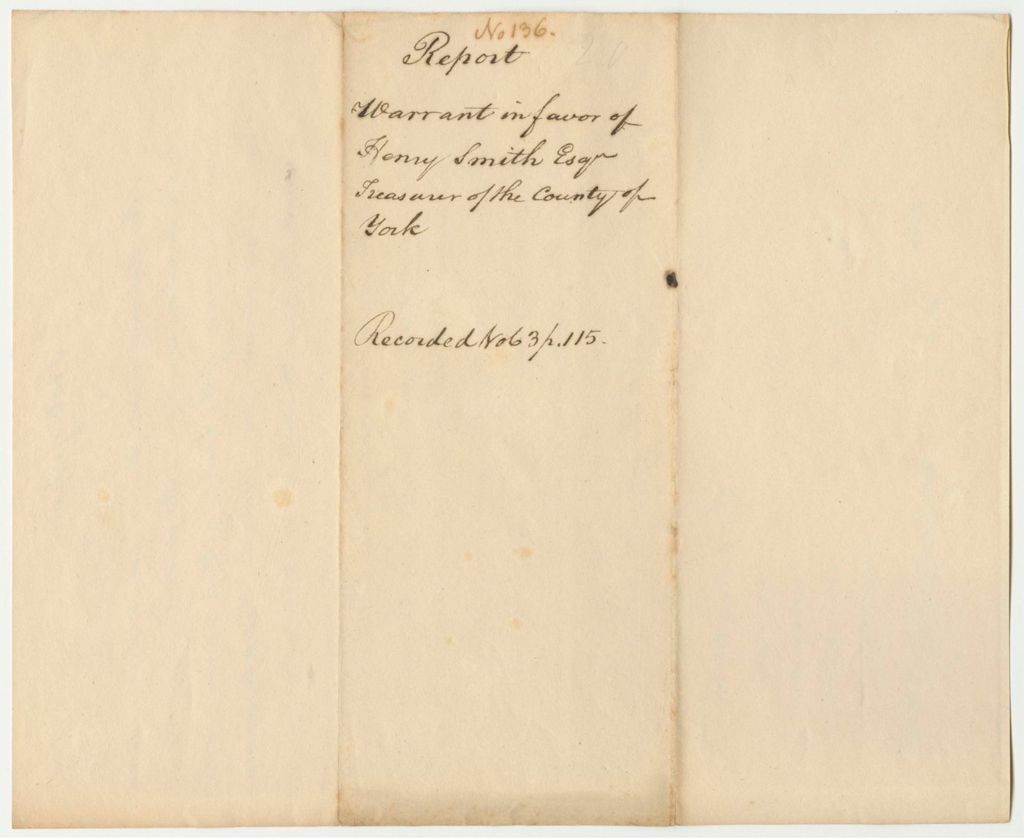 No 136.
Report
Warrant in favor of
Henry Smith Esqr
Treasurer of the County of
York
Recorded No 63 p. 115.